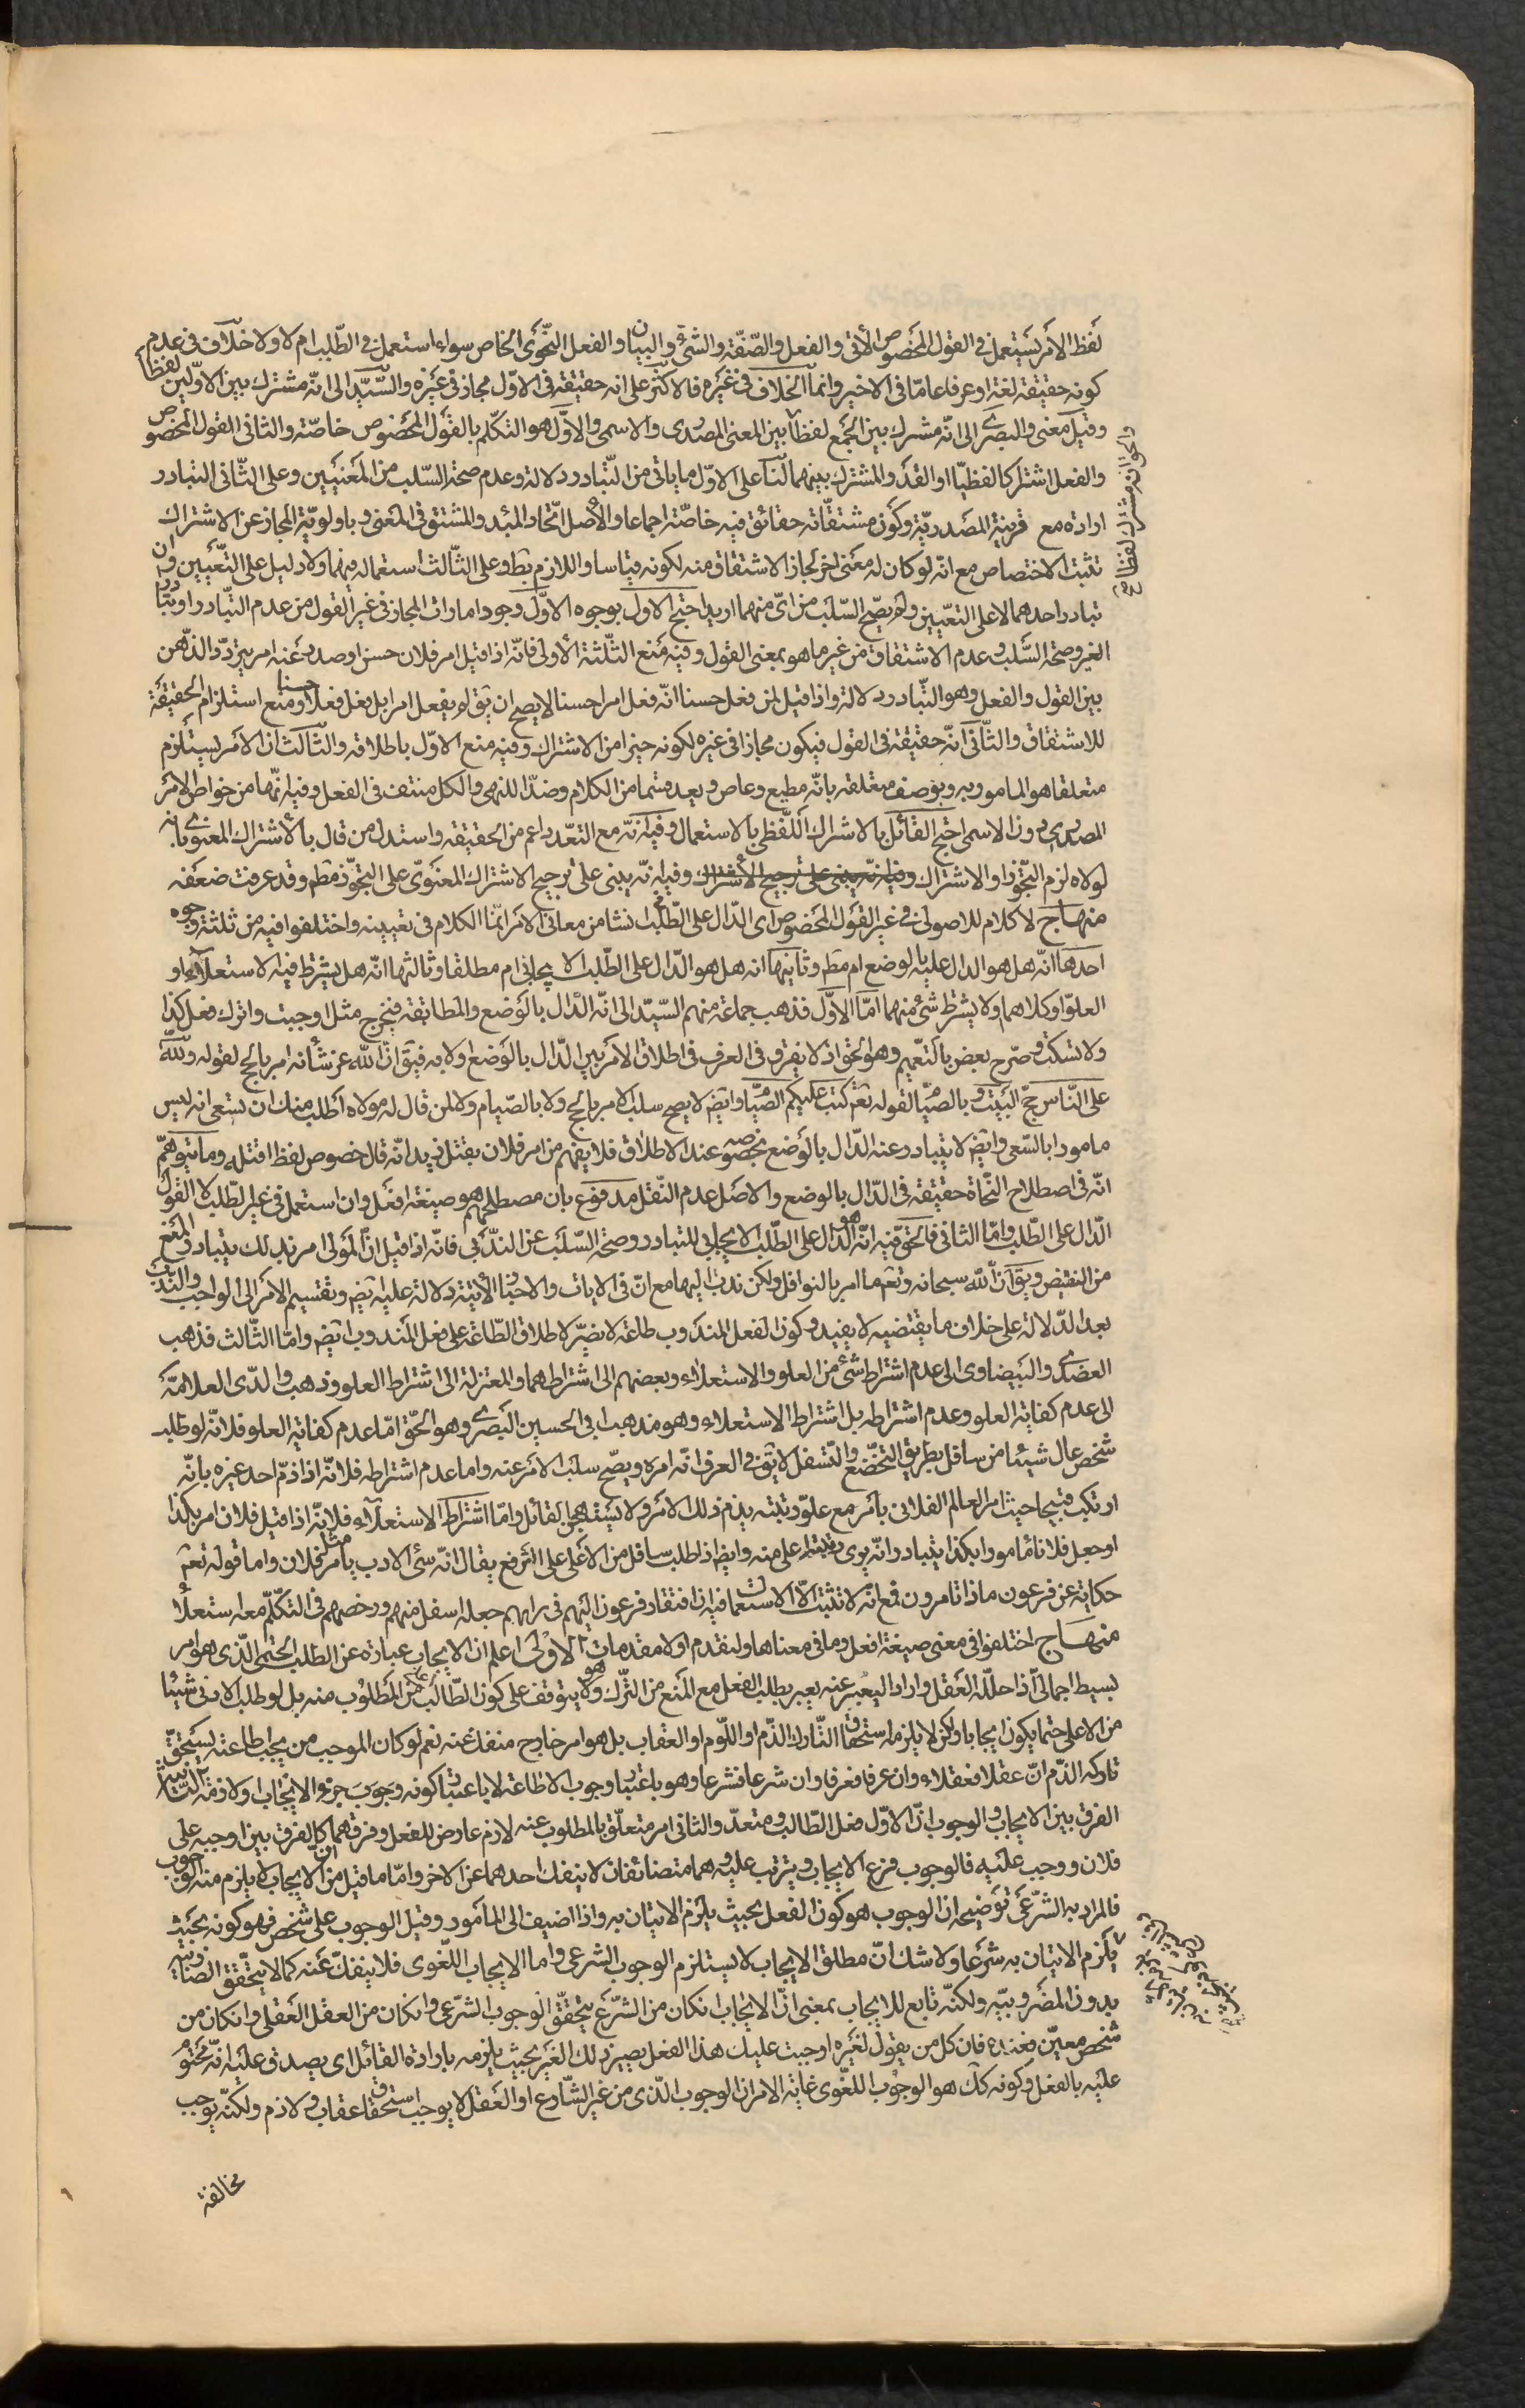 لفظ الامر يستعمل في القول المخصوص الآتي والفعل والصّفة والشئ والبيان والفعل النّحوي الخاص سواء استعمل في الطّلب ام لا ولا خلاف في عدم
كونه حقيقة لغة او عرفا عامّا في الاخير وانّما الخلاف في غيره فالاكثر على انه حقيقة في الاوّل مجاز في غيره والسّيّد الى انّه مشترك بين الاوّلين لفظا
وقيل معنى والبصرى الى انّه مشترك بين الجمع لفظا بين المعنى المصدرى والاسمى والاوّل هو التكلّم بالقول المخصوص خاصّة والثانى القول المخصوص
والحق انه مشترك لفظا
والفعل اشتراكا لفظيّا او القدر المشترك بينهما لنا على الاوّل ما ياتى من التّبادر دلالة وعدم صحة السّلب من المعنيين وعلى الثّانى التبادر
ارادة مع قرينة المصدريّة وكون مشتقّاته حقائق فيه خاصّة اجماعا والاصل اتّحاد المبدء والمشتق في المعنى وباولويّة المجاز عن الاشتراك
تثبت الاختصاص مع انّه لو كان له معنى اخر لجاز الاشتقاق منه لكونه قياسا واللازم بط وعلى الثّالث استعماله فيهما ولا دليل على التّعيين وان
تبادر احدهما لا على التعيين ولم يصحّ السّلب من اىّ منهما اريد احتج الاول بوجوه الاوّل وجود امارات المجاز في غير القول من عدم التّبادر او تبادر
الغير وصحة السّلب وعدم الاشتقاق من غير ما هو بمعنى القول وفيه منع الثّلثة الاولى فانّه اذا قيل امر فلان حسن او صدر عنه امر يتردّد الذّهن
بين القول والفعل وهو التّبادر دلالة واذا قيل لمن فعل حسنا انّه فعل امرا حسنا لا يصح ان يق لم يفعل امرا بل فعل فعلا حسنا ومنع استلزام الحقيقة
للاشتقاق والثّانى انّه حقيقة في القول فيكون مجازا في غيره لكونه خيرا من الاشتراك وفيه منع الاوّل باطلاقه والثّالث ان الامر يستلزم
متعلقا هو المامور به ويوصف متعلقه بانّه مطيع وعاص ويعد قسما من الكلام وضدّا للنهى والكل منتف في الفعل وفيه انّها من خواص الامر
المصدرى دون الاسمى احتج القائل بالاشتراك اللّفظى بالاستعمال وفيه انّه مع التعدّد اعم من الحقيقة واستدل من قال بالاشتراك المعنوى بانه
لولاه لزم التّجوّز او الاشتراك وفيه انّه يبنى على ترجيح الاشتراك وفيه انّه يبنى على ترجيح الاشتراك المعنوىّ على التجوّز مطم وقد عرفت ضعفه
منهاج لا كلام للاصولى في غير القول المخصوص اى الدّال على الطّلب انشاء من معانى الامر انّما الكلام في تعيينه واختلفوا فيه من ثلثة وجوه
احدها انّه هل هو الدال عليه بالوضع ام مطم وثانيها انه هل هو الدّال على الطّلب الايجابى ام مطلقا وثالثها انّه هل يشترط فيه الاستعلاء او
العلوّ او كلاهما ولا يشترط شئ منهما امّا الاوّل فذهب جماعة منهم السّيّد الى انّه الدّال بالوضع والمطابقة فيخرج مثل اوجبت واترك فعل كذا
ولا تسكت وصرّح بعض بالتّعميم وهو الحق اذ لا يفرق في العرف في اطلاق الامر بين الدّال بالوضع ولا به فيق انّ الله عز شانه امر بالحج لقوله ولله
على النّاس حجّ البيت وبالصّيام لقوله تعم كتب عليكم الصّيام وايض لا يصح سلب الامر بالحج ولا بالصّيام ولا لمن قال له مولاه اطلب منك ان تسعى انه ليس
مامورا بالسّعى وايض لا يتبادر عنه الدّال بالوضع بخصوصه عند الاطلاق فلا يفهم من امر فلان بقتل زيد انّه قال خصوص لفظ اقتله وما يتوهّم
انّه في اصطلاح النّحاة حقيقة في الدّال بالوضع والاصل عدم النّقل مدفوع بان مصطلحهم هو صيغة افعل وان استعمل في غير الطّلب لا القول
الدّال على الطّلب وامّا الثانى فالحق فيه انّه هو الدّال على الطّلب الايجابى للتبادر وصحة السّلب عن النّدبى فانّه اذا قيل انّ المولى امر زيد بذلك يتبادر المنع
من النقيض ويق انّ الله سبحانه وتعم ما امر بالنوافل ولكن ندب اليها مع انّ في الايات والاخبار الآتية دلالة عليه ايض وتقسيم الامر الى الواجب والندب
بعد الدّلالة على خلاف ما يقتضيه لا يفيد وكون الفعل المندوب طاعة لا يضرّ لاطلاق الطّاعة على فعل المندوب ايض وامّا الثّالث فذهب
العضدى والبيضاوى الى عدم اشتراط شئ من العلو والاستعلاء وبعضهم الى اشتراطهما والمعتزلة الى اشتراط العلو وذهب والدى العلامة
الى عدم كفاية العلو وعدم اشتراطه بل اشتراط الاستعلاء وهو مذهب ابى الحسين البصرى وهو الحقّ امّا عدم كفاية العلو فلانّه لو طلب
شخص عال شيئا من سافل بطريق التخضّع والتّسفل لا يق في العرف انّه امره ويصحّ سلب الامر عنه واما عدم اشتراطه فلانّه اذا ذمّ احد غيره بانّه
ارتكب قبيحا حيث امر العالم الفلانى بامر مع علوّ رتبته يذم ذلك الامر ولا يستهجن القائل وامّا اشتراط الاستعلاء فلانّه اذا قيل فلان امر بكذا
او جعل فلانا مامورا بكذا يتبادر انّه يرى رتبته اعلى منه وايض اذا طلب سافل من الاعلى على الترفع يقال انّه سئ الادب يامر مثل فلان واما قوله تعم
حكاية عن فرعون ماذا تامرون فمع انّه لا تثبت الّا الاستعمال فيه ان افتقار فرعون اليهم في رايهم جعله اسفل منهم ورخصهم في التكلّم معه استعلاء
منهاج اختلفوا في معنى صيغة افعل وما في معناها ولنقدم اولا مقدمات الاولى اعلم ان الايجاب عبارة عن الطلب الحتمى الّذى هو امر
بسيط اجمالى اذا حلّله العقل واراد التعبير عنه يعبر بطلب الفعل مع المنع من التّرك وهو لا يتوقف على كون الطّالب اعلى من المطلوب منه بل لو طلب الادنى شيئا
من الاعلى حتما يكون ايجابا ولكن لا يلزمه استحقاق التّارك الذّم او اللّوم او العقاب بل هو امر خارج منفك عنه نعم لو كان الموجب من يجب اطاعته يستحقّ
تاركه الذّم انّ عقلا فعقلاء وان عرفا فعرفا وان شرعا فشرعا وهو باعتبار وجوب الاطاعة لا باعتبار كونه وجوب جزء الايجاب ولازمه الثانية
الفرق بين الايجاب والوجوب انّ الاوّل فعل الطّالب ومتعدّ والثانى امر متعلّق بالمطلوب عنه لازم عارض للفعل وفرقهما كالفرق بين اوجبه على
فلان ووجب عليه فالوجوب فرع الايجاب ويترتب عليه وهما متضائفان لا ينفك احدهما عن الاخر وامّا ما قيل من ان الايجاب لا يلزم منه الوجوب
فالمراد به الشّرعى توضيحه ان الوجوب هو كون الفعل بحيث يلزم الاتيان به واذا اضيف الى المامور وقيل الوجوب على شخص فهو كونه بحيث
يلزم الاتيان به شرعا ولا شك انّ مطلق الايجاب لا يستلزم الوجوب الشرعى واما الايجاب اللّغوى فلا ينفكّ عنه كما لا يتحقق الضّاربية
بدون المضروبيّه ولكنّه تابع للايجاب بمعنى انّ الايجاب ان كان من الشّرع يتحقّق الوجوب الشرعى وان كان من العقل العقلى وان كان من
شخص معيّن فعنده فان كل من يقول لغيره اوجبت عليك هذا الفعل يصير ذلك الغير بحيث يلزمه بارادة القائل اى يصدق عليه انّه محتوم
عليه بالفعل وكونه كك هو الوجوب اللغّوى غاية الامر ان الوجوب الّذى من غير الشّارع او العقل لا يوجب استحقاق عقاب ولا ذم ولكنّه يوجب
مخالفة